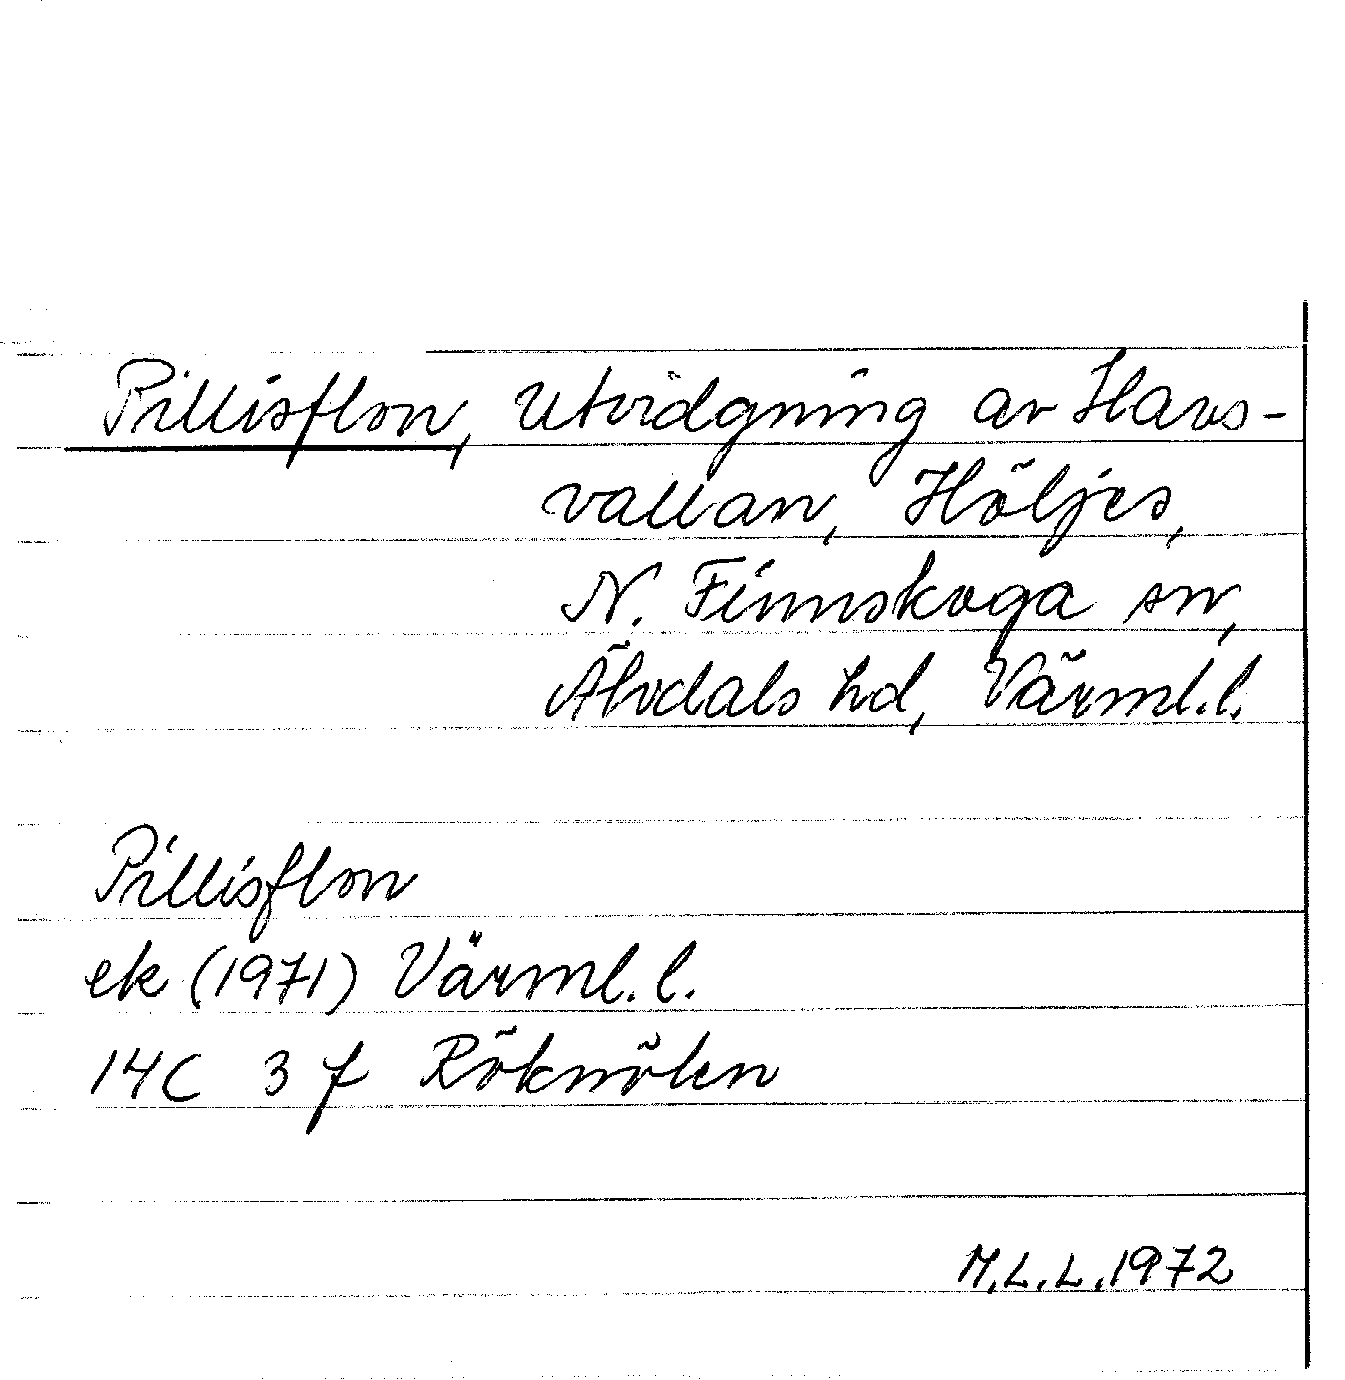 Pillisflon, utvidgning av Havs-
vallan, Höljes,
N. Finnskoga sn,
Älvdals hd, Värml.l.
Pillisflon
ek (1971) Värml.l.
14C 3f Röknölen
M.L.L.1972